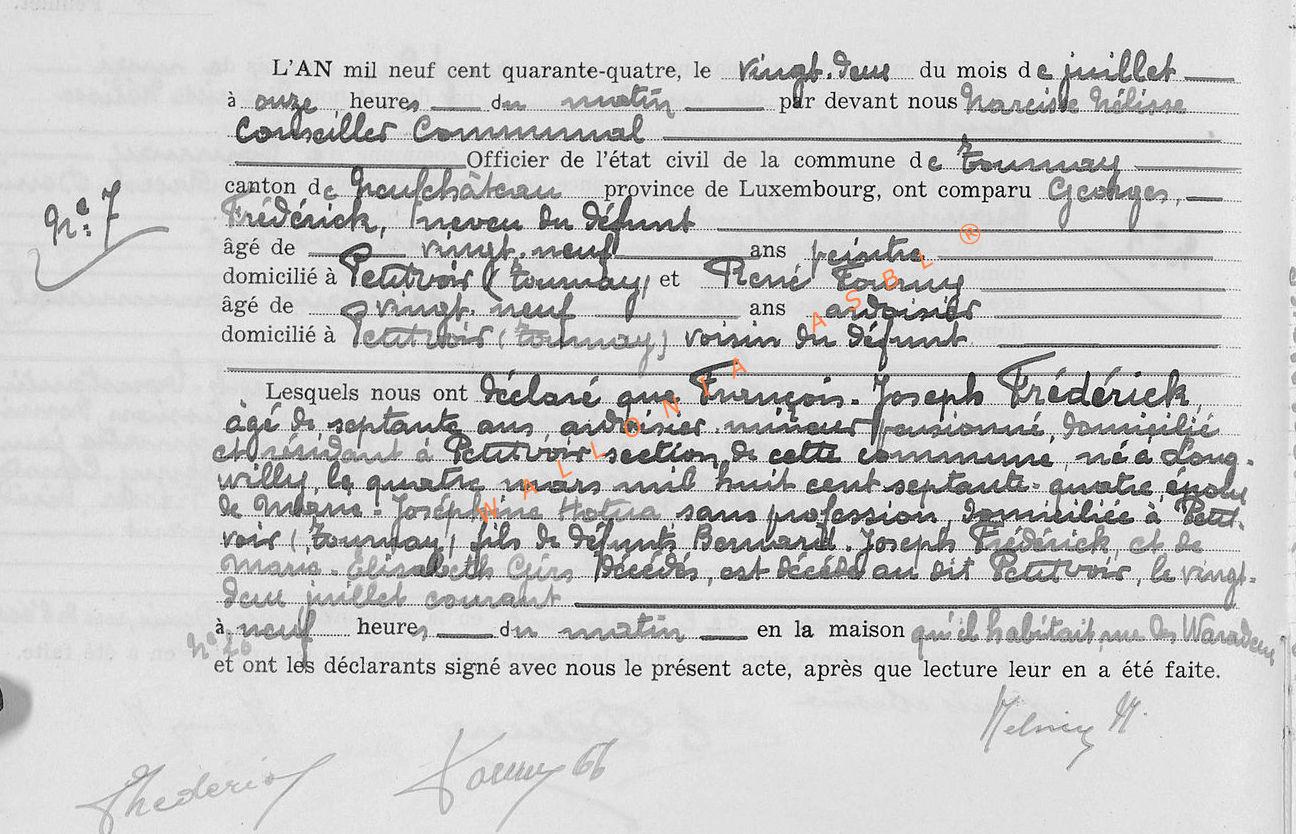 L'AN mil neuf cent quarante-quatre, le vingt-deux du mois de juillet
à onze heures du matin par devant nous Narcisse Hélisse
Conseiller Communal
Officier de l'état civil de la commune de Tournay
canton de Neufchâteau province de Luxembourg, ont comparu Georges,
Frédérick, neveu du défunt
nº 7
âgé de vingt-neuf ans peintre
domicilié à Petitvoir (Tournay) et René Tourny
âgé de vingt-neuf ans ardoisier
domicilié à Petitvoir (Tournay) voisin du défunt
Lesquels nous ont déclaré que François-Joseph Frédérick,
âgé de septante ans, ardoisier mineur pensionné, domicilié
et résidant à Petitvoir section de cette commune, né à Long-
willy, le quatre mars mil huit cent septante-quatre, époux
de Marie-Joséphine sans profession, domiciliée à Petit-
voir (Tournay) fils de défunts Bernard-Joseph Frédérick, et de
Marie-Elisabeth décédés, est décédé au dit Petitvoir, le vingt-
deux juillet courant
à neuf heures du matin en la maison qu'il habitait, rue des
nº 26
et ont les déclarants signé avec nous le présent acte, après que lecture leur en a été faite.
WALLONIA ASBL ®